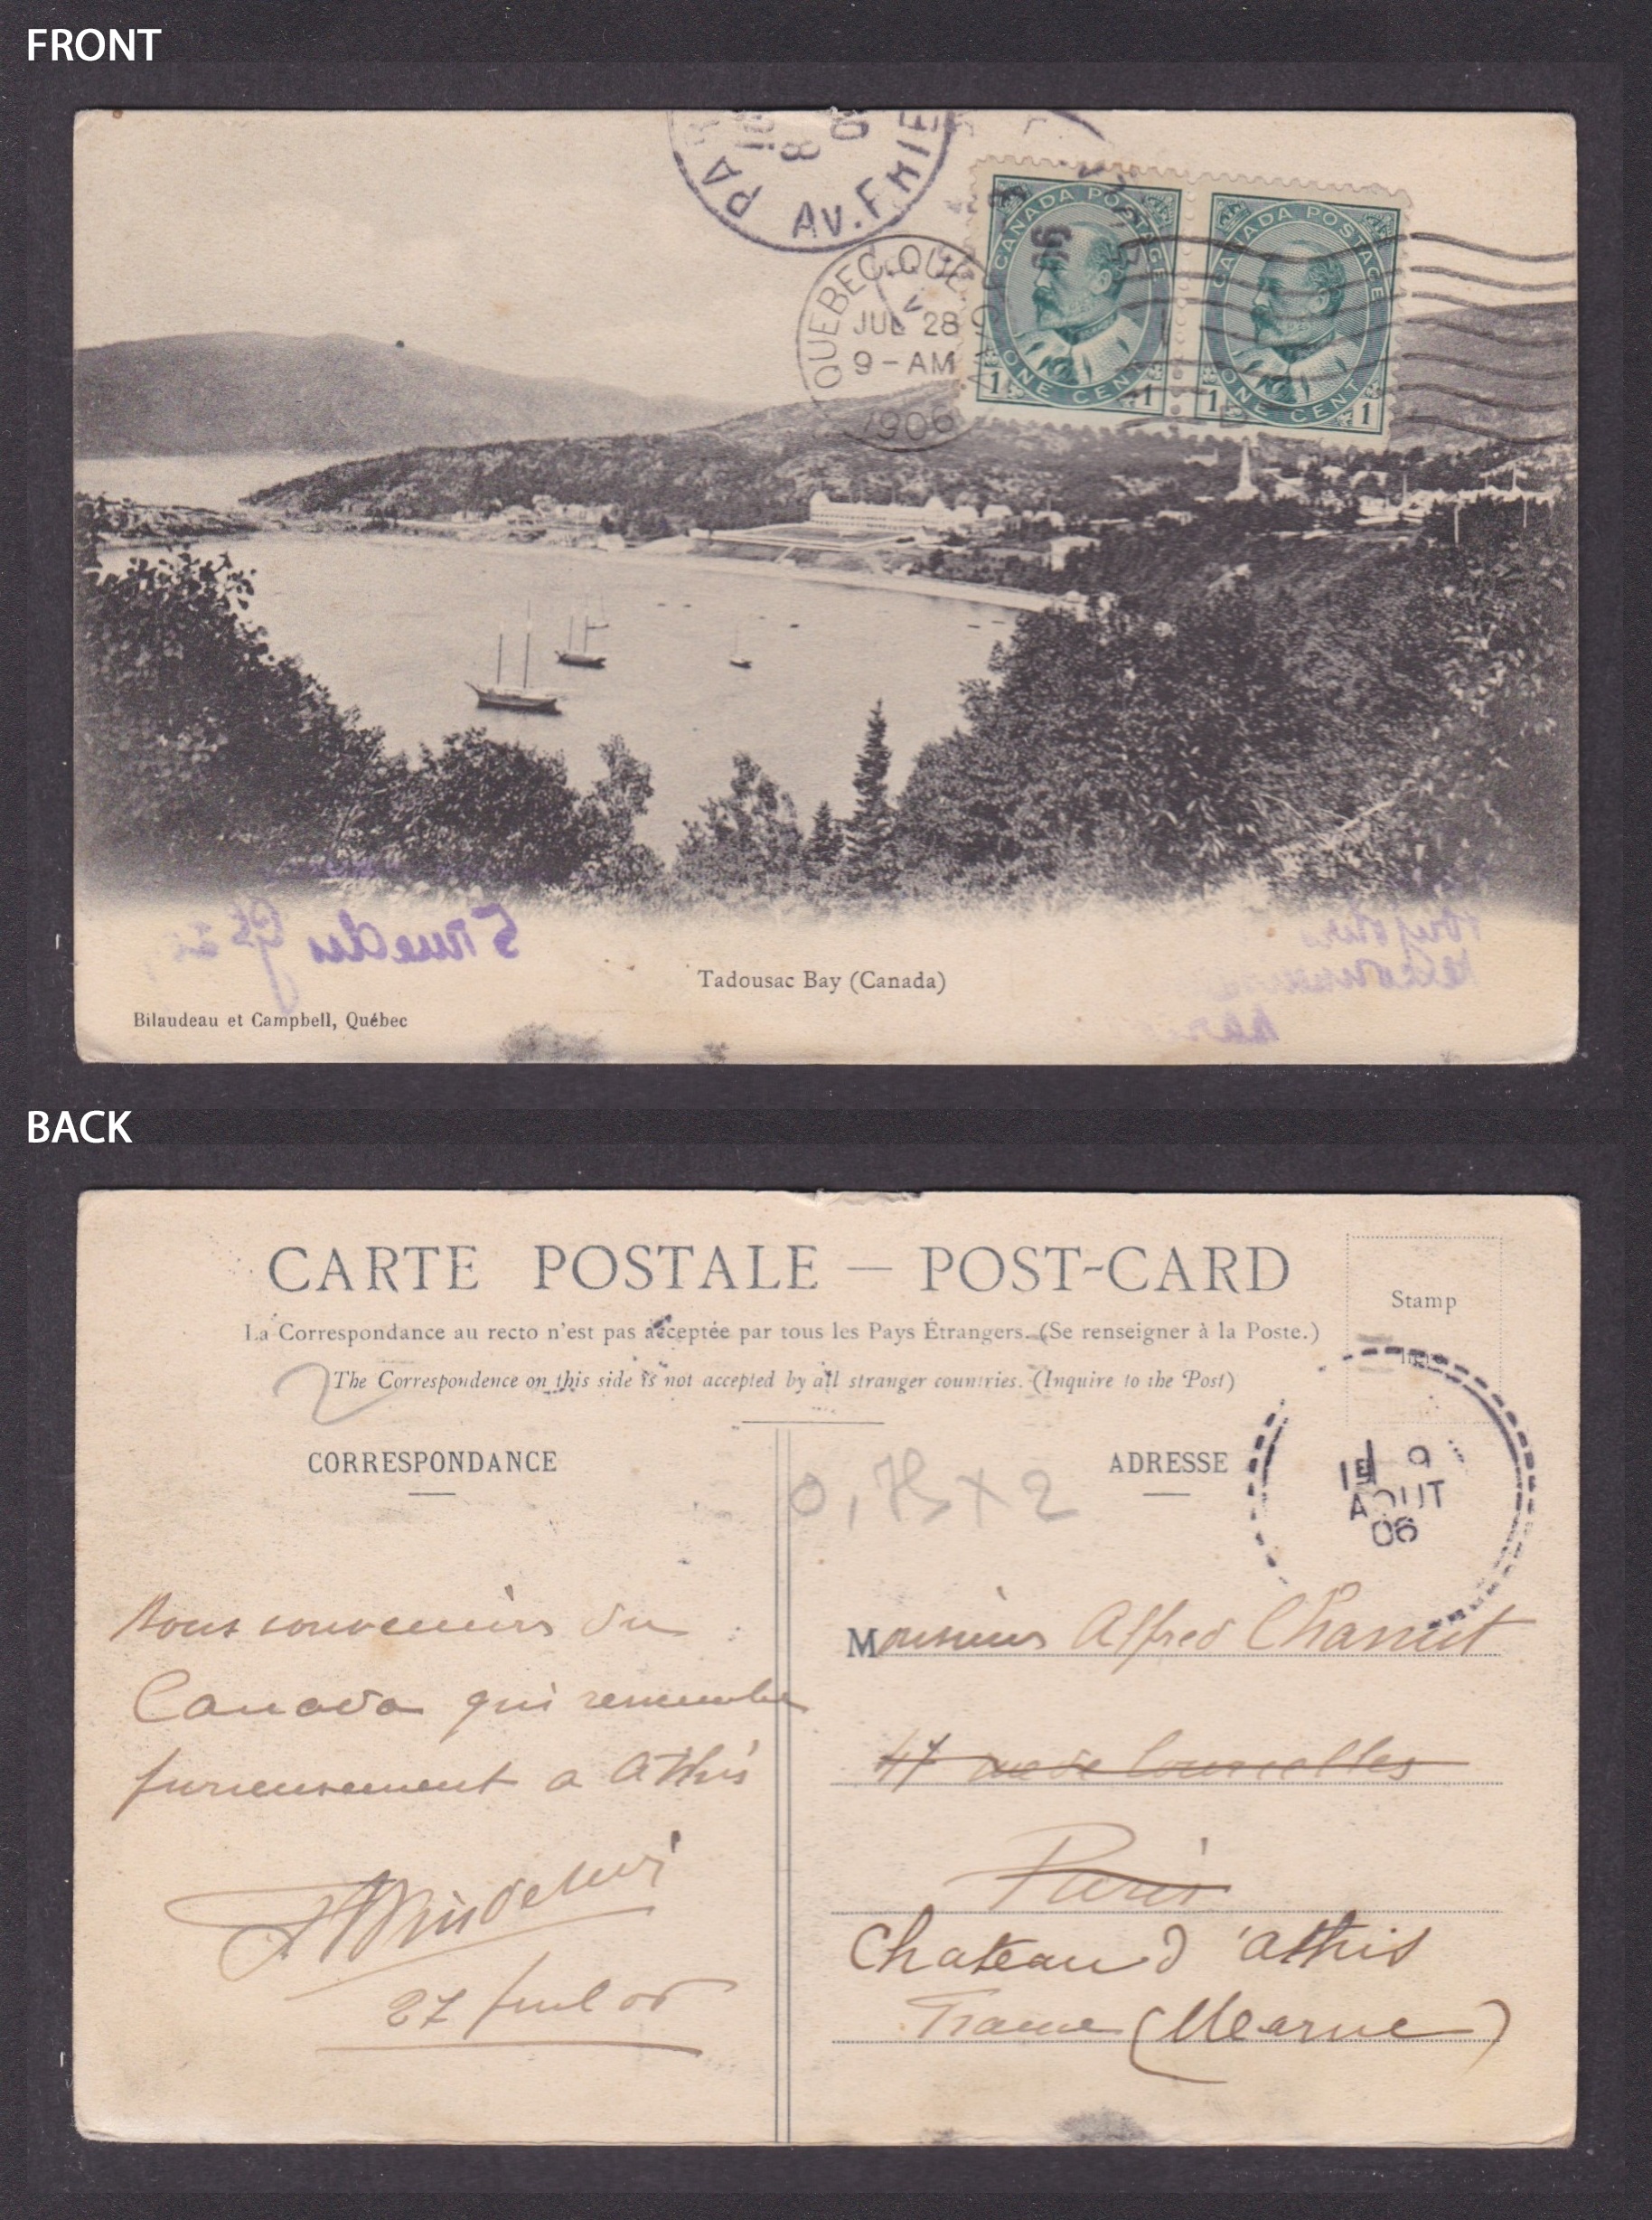 FRONT
PA
8
AV. F
QUEBEC, QUE
JUL 28
9 - AM
1906
CANADA POSTAGE
ONE CENT
1 1
CANADA POSTAGE
ONE CENT
1 1
5 rue du
Tadousac Bay (Canada)
Bilaudeau et Campbell, Québec
BACK
CARTE POSTALE — POST-CARD
Stamp
La Correspondance au recto n'est pas acceptée par tous les Pays Étrangers. (Se renseigner à la Poste.)
The Correspondence on this side is not accepted by all stranger countries. (Inquire to the Post)
CORRESPONDANCE
ADRESSE
0,75 x 2
9
AOUT
06
souvenirs du
Canada qui
furieusement a Athis
27
Monsieur Alfred
47 rue de
Paris
Chateau d'Athis
(Marne)